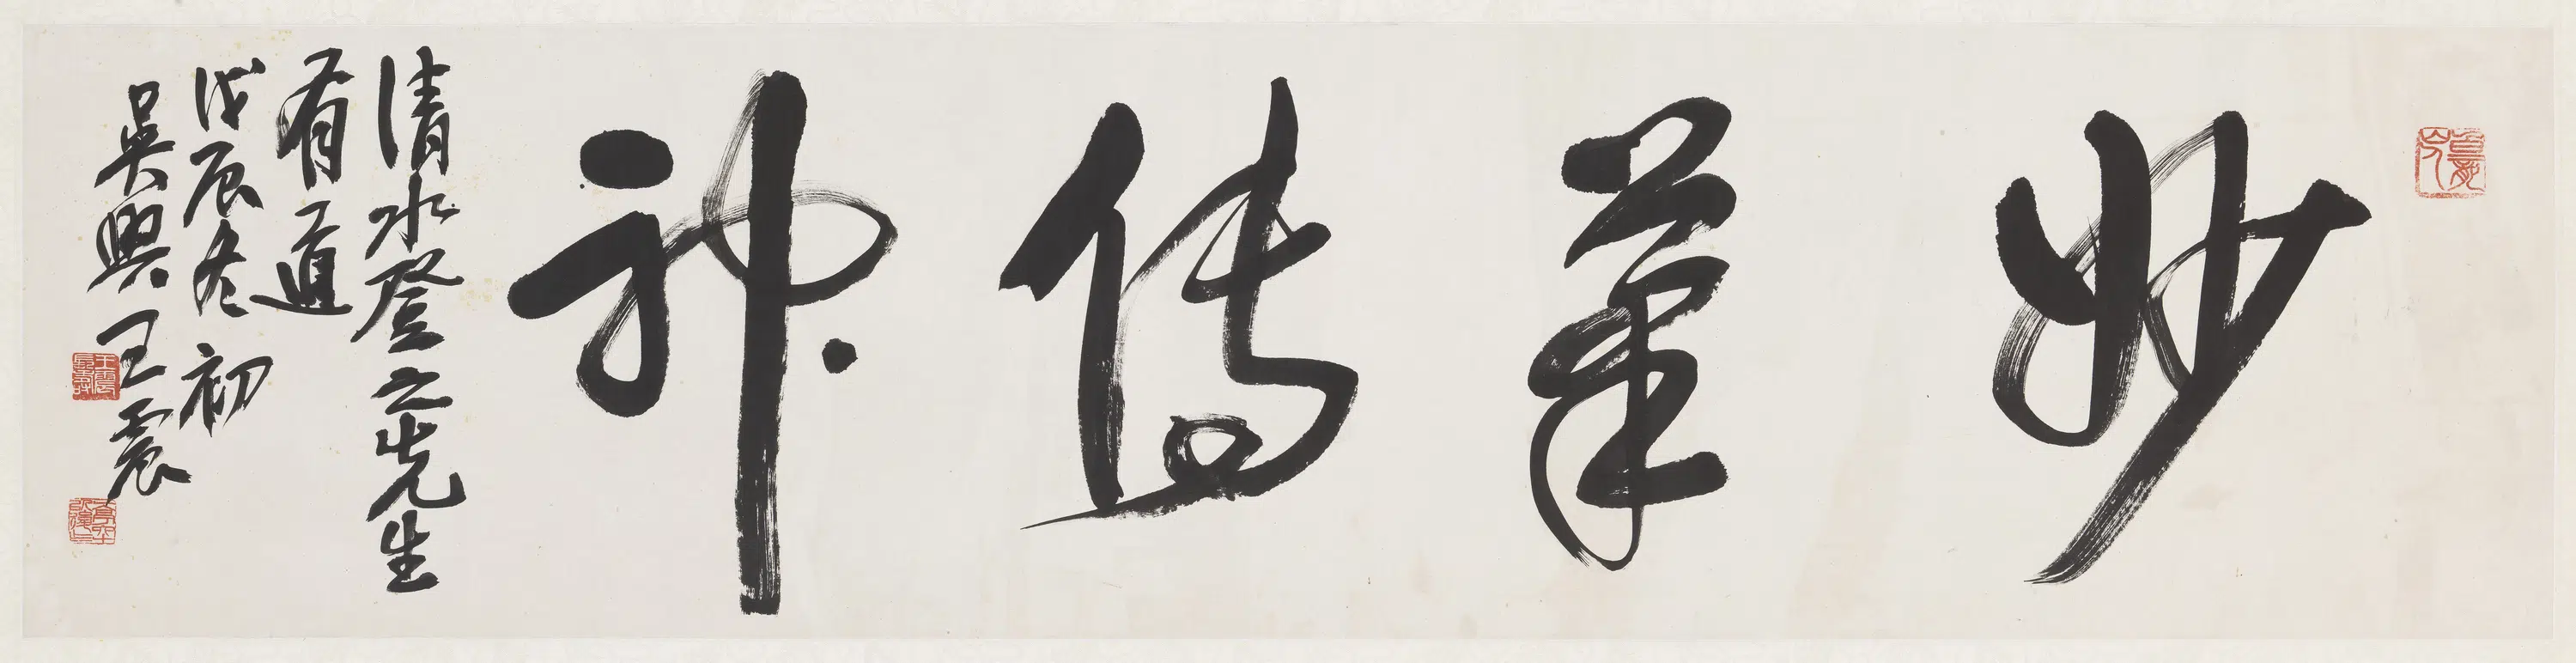 妙筆傳神
清水登之先生
有道
戊辰冬初
吳興王震